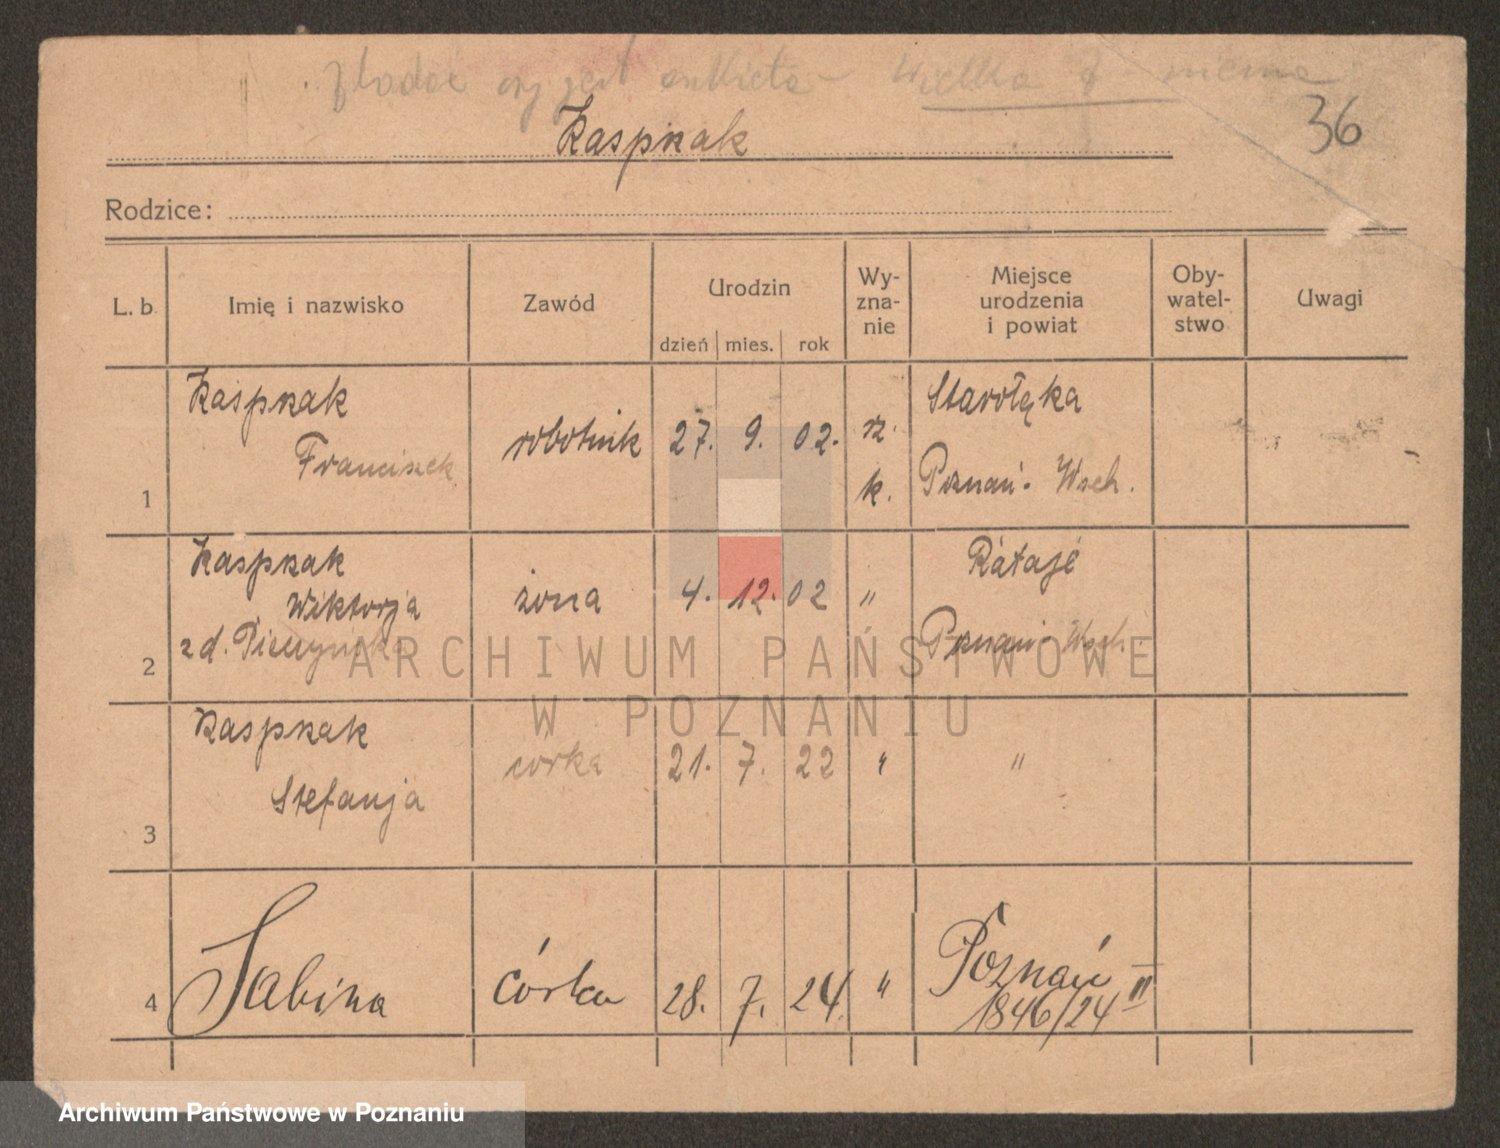 czy jest ankieta – Wielka 8 niema
Kasprzak
36
Rodzice:
L. b.
Imię i nazwisko
Zawód
Urodzin
dzień mies. rok
Wy-
zna-
nie
Miejsce
urodzenia
i powiat
Oby-
watel-
stwo
Uwagi
Kasprzak
Franciszek
robotnik
27. 9. 02.
rz.
k.
Starołęka
Poznań - Wsch.
1
Kasprzak
Wiktorja
z d.
żona
4. 12. 02
"
Rataje
Poznań - Wsch.
2
Kasprzak
Stefanja
córka
21. 7. 22
"
"
3
Sabina
córka
28. 7. 24.
"
Poznań II
1846/24
4
ARCHIWUM PAŃSTWOWE
W POZNANIU
Archiwum Państwowe w Poznaniu